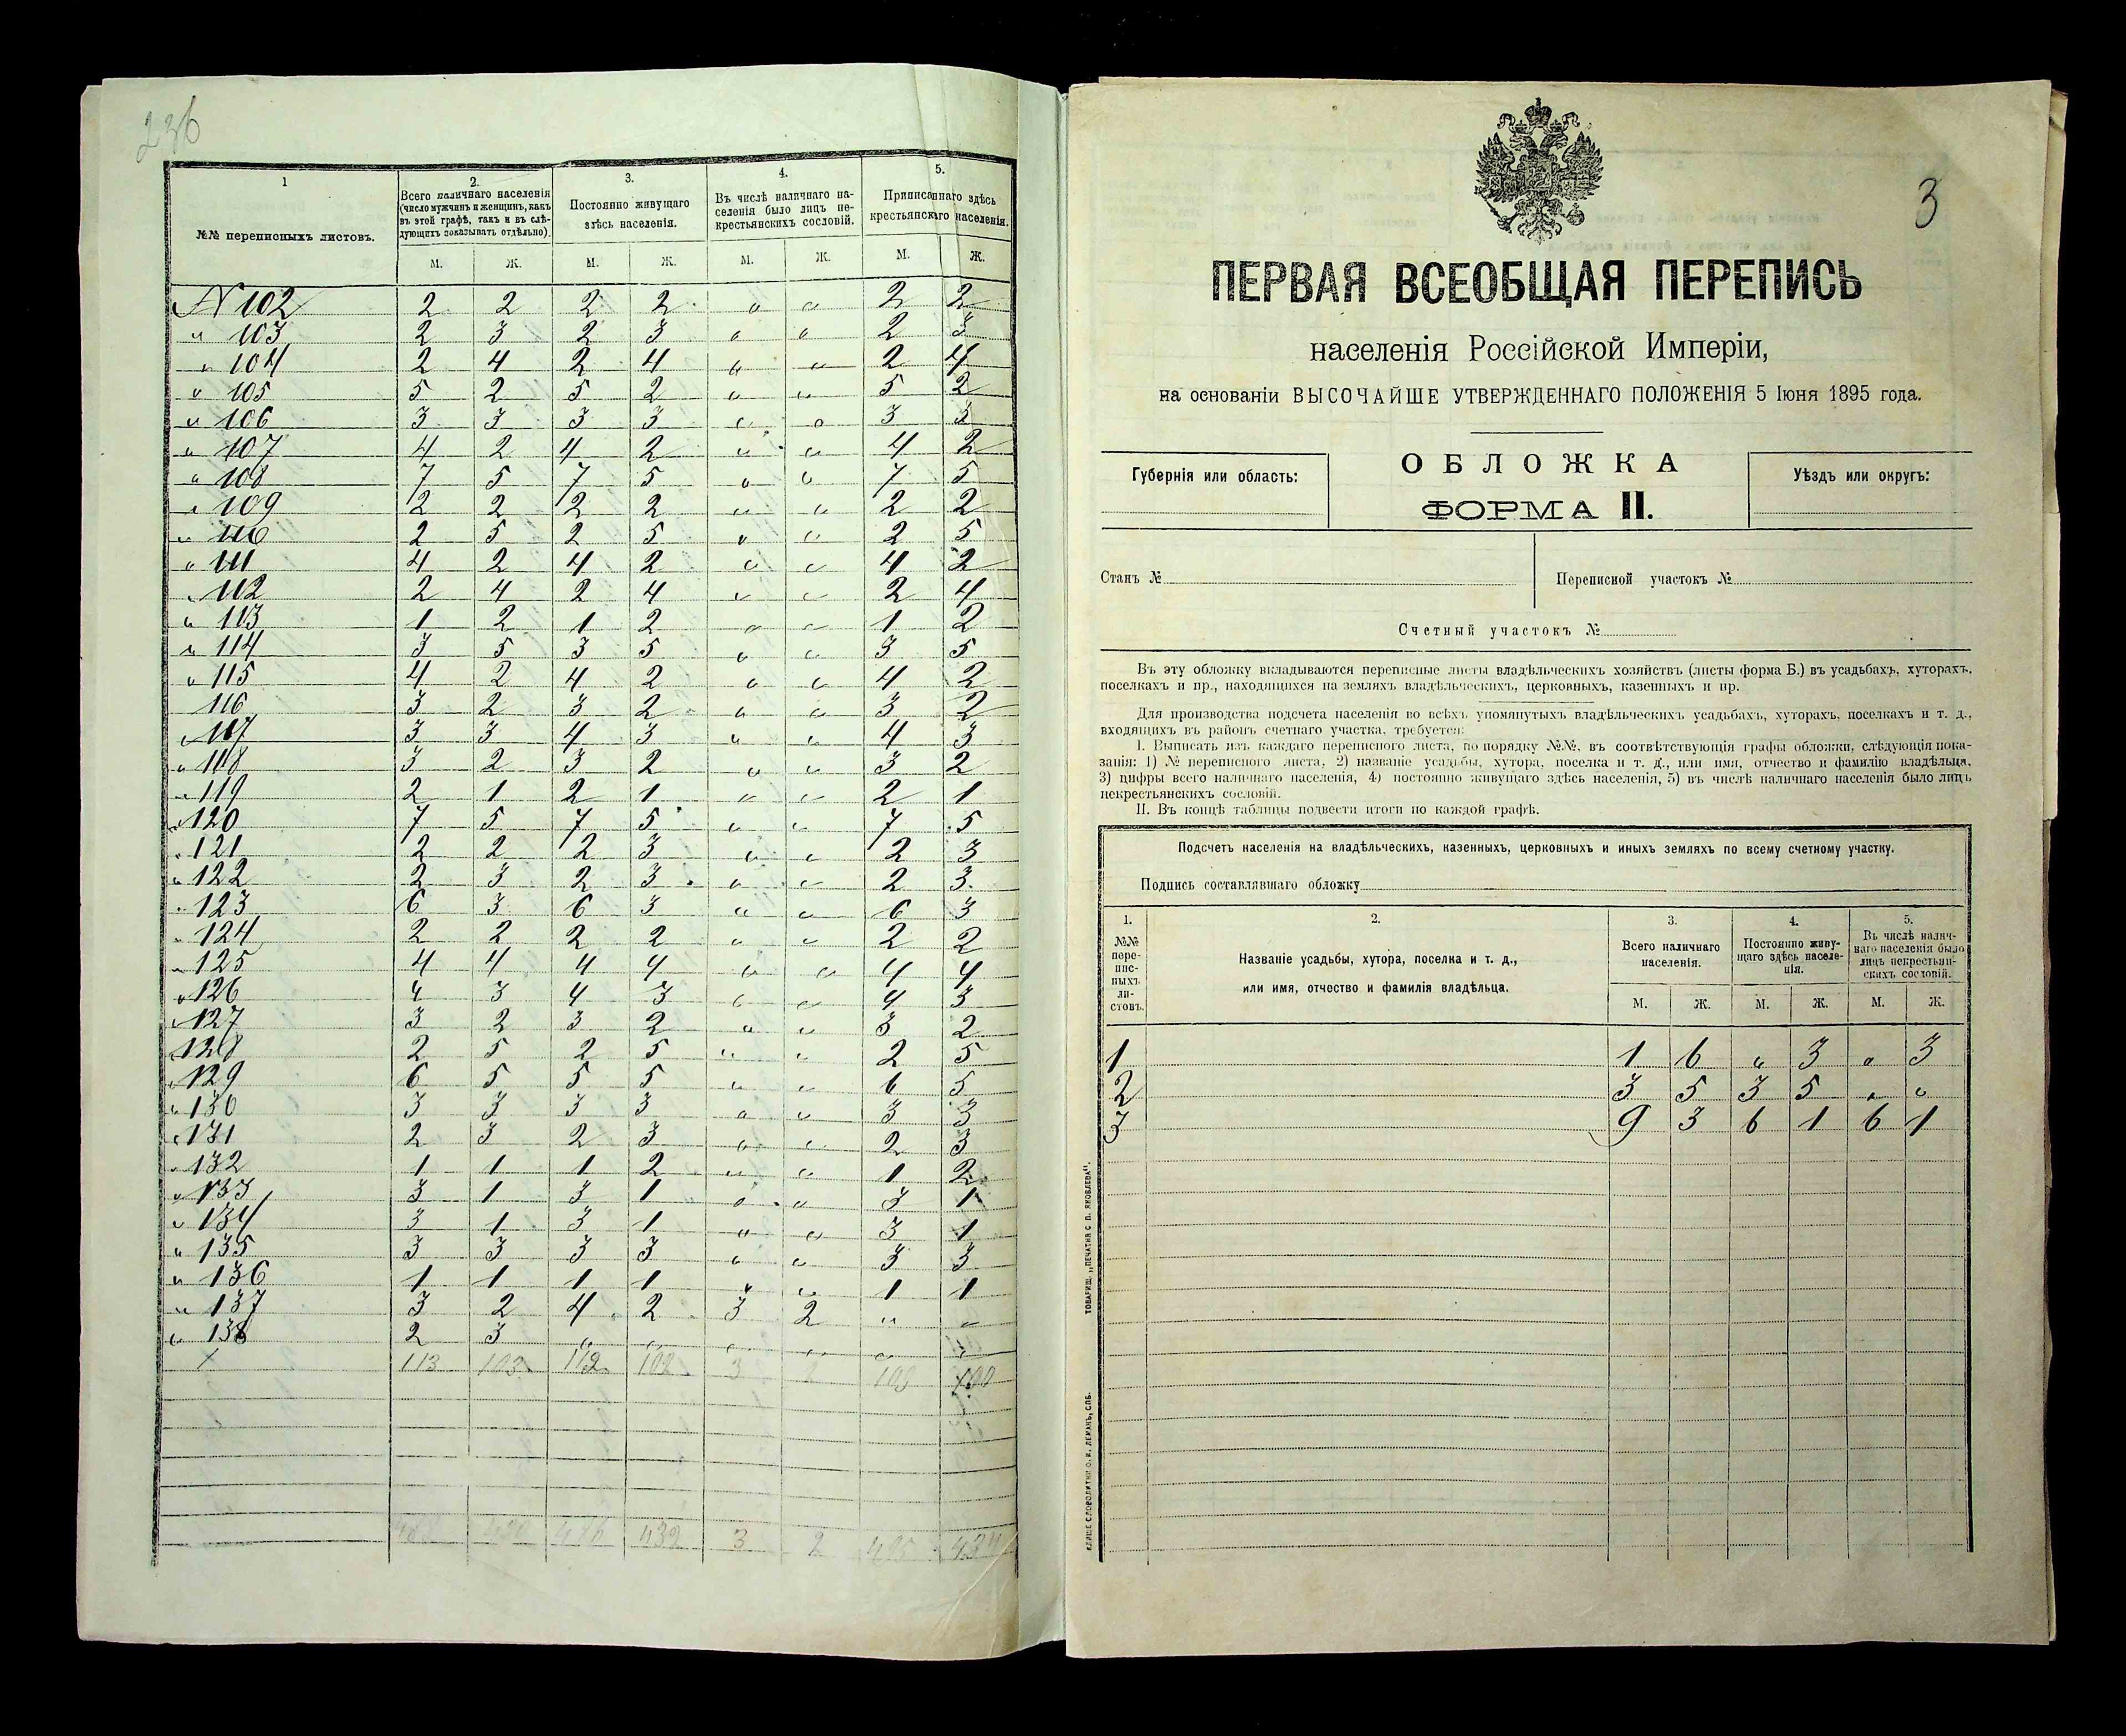 236
1
2.
3.
4.
5.
№№ переписныхъ листовъ.
Всего наличнаго населенія
(число мужчинъ и женщинъ, какъ
въ этой графѣ, такъ и въ слѣ-
дующихъ показывать отдѣльно).
Постоянно живущаго
здѣсь населенія.
Въ числѣ наличнаго на-
селенія было лицъ не-
крестьянскихъ сословій.
Приписаннаго здѣсь
крестьянскаго населенія.
М. Ж. М. Ж. М. Ж. М. Ж.
N 102 2 2 2 2 " " 2 2
" 103 2 3 2 3 " " 2 3
" 104 2 4 2 4 " " 2 4
" 105 5 2 5 2 " " 5 2
" 106 3 3 3 3 " " 3 3
" 107 4 2 4 2 " " 4 2
" 108 7 5 7 5 " " 7 5
" 109 2 2 2 2 " " 2 2
" 110 2 5 2 5 " " 2 5
" 111 4 2 4 2 " " 4 2
" 112 2 4 2 4 " " 2 4
" 113 1 2 1 2 " " 1 2
" 114 3 5 3 5 " " 3 5
" 115 4 2 4 2 " " 4 2
116 3 2 3 2 " " 3 2
" 117 3 3 4 3 " " 4 3
" 118 3 2 3 2 " " 3 2
" 119 2 1 2 1 " " 2 1
" 120 7 5 7 5 " " 7 5
" 121 2 2 2 3 " " 2 3
" 122 2 3 2 3 " " 2 3
" 123 6 3 6 3 " " 6 3
" 124 2 2 2 2 " " 2 2
" 125 4 4 4 4 " " 4 4
" 126 4 3 4 3 " " 4 3
" 127 3 2 3 2 " " 3 2
" 128 2 5 2 5 " " 2 5
" 129 6 5 5 5 " " 6 5
" 130 3 3 3 3 " " 3 3
" 131 2 3 2 3 " " 2 3
" 132 1 1 1 2 " " 1 2
" 133 3 1 3 1 " " 3 1
" 134 3 1 3 1 " " 3 1
" 135 3 3 3 3 " " 3 3
" 136 1 1 1 1 " " 1 1
" 137 3 2 4 2 3 2 " "
" 138 2 3 " " " " " "
113 103 112 102 3 108 100
432 3 2
3
ПЕРВАЯ ВСЕОБЩАЯ ПЕРЕПИСЬ
населенія Россійской Имперіи,
на основаніи ВЫСОЧАЙШЕ УТВЕРЖДЕННАГО ПОЛОЖЕНІЯ 5 Іюня 1895 года.
Губернія или область:
ОБЛОЖКА
ФОРМА II.
Уѣздъ или округъ:
Станъ №
Переписной участокъ №
Счетный участокъ №
Въ эту обложку вкладываются переписные листы владѣльческихъ хозяйствъ (листы форма Б.) въ усадьбахъ, хуторахъ,
поселкахъ и пр., находящихся на земляхъ владѣльческихъ, церковныхъ, казенныхъ и пр.
Для производства подсчета населенія во всѣхъ упомянутыхъ владѣльческихъ усадьбахъ, хуторахъ, поселкахъ и т. д.,
входящихъ въ районъ счетнаго участка, требуется:
I. Выписать изъ каждаго переписного листа, по порядку №№, въ соотвѣтствующія графы обложки, слѣдующія пока-
занія: 1) № переписного листа, 2) названіе усадьбы, хутора, поселка и т. д., или имя, отчество и фамилію владѣльца,
3) цифры всего наличнаго населенія, 4) постоянно живущаго здѣсь населенія, 5) въ числѣ наличнаго населенія было лицъ
некрестьянскихъ сословій.
II. Въ концѣ таблицы подвести итоги по каждой графѣ.
Подсчетъ населенія на владѣльческихъ, казенныхъ, церковныхъ и иныхъ земляхъ по всему счетному участку.
Подпись составлявшаго обложку
1.
2.
3.
4.
5.
№№
пере-
пис-
ныхъ
ли-
стовъ.
Названіе усадьбы, хутора, поселка и т. д.,
или имя, отчество и фамилія владѣльца.
Всего наличнаго
населенія.
Постоянно живу-
щаго здѣсь населе-
нія.
Въ числѣ налич-
наго населенія было
лицъ некрестьян-
скихъ сословій.
М. Ж. М. Ж. М. Ж.
1 1 6 " 3 " 3
2 3 5 3 5 " "
3 9 3 6 1 6 1
ТОВАРИЩ. „ПЕЧАТНЯ С. П. ЯКОВЛЕВА".
КЛИШЕ СЛОВОЛИТНИ О. И. ЛЕМАНЪ, СПБ.